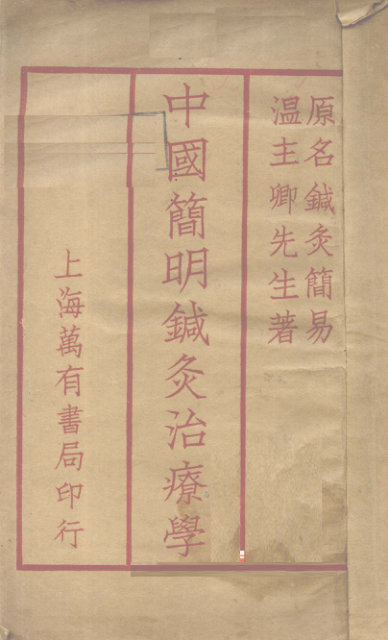 原名鍼灸簡易
温主卿先生著
中國簡明鍼灸治療學
上海萬有書局印行